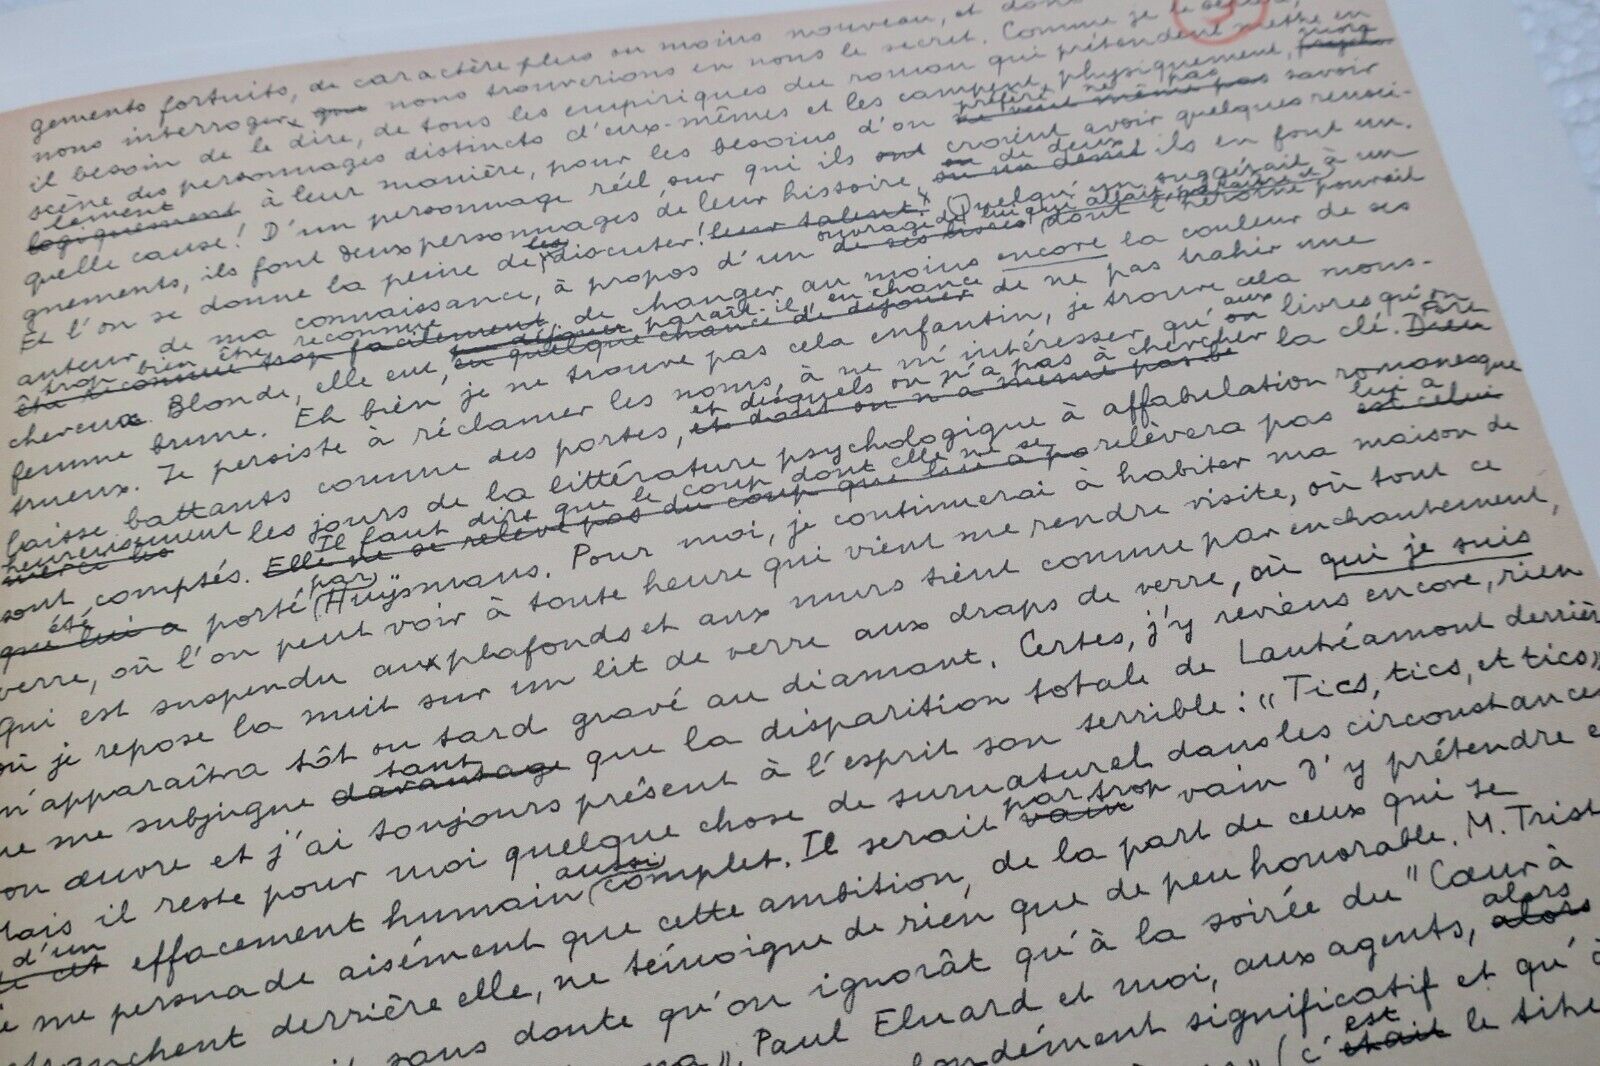 gements fortuits, de caractère plus ou moins nouveau, et dont
nous interroger, que nous trouverions en nous le secret. Comme je
il besoin de le dire, de tous les empiriques du roman qui prétendent mettre en
scène des personnages distincts d'eux-mêmes et les campent physiquement,
lement
logiquement à leur manière, pour les besoins d'on préfère ne pas
ne veut même pas savoir
quelle cause! D'un personnage réel, sur qui ils ont croient avoir quelques rensei-
gnements, ils font deux personnages de leur histoire, ou de deux
ils en font un.
Et l'on se donne la peine de les discuter! leur talent! Quelqu'un suggérait à un
auteur de ma connaissance, à propos d'un ouvrage de lui qui allait paraître et
de ses livres dont l'héroïne pouvait
trop bien être reconnue
été reconnue trop facilement, de changer au moins encore la couleur de ses
cheveux. Blonde, elle eut, parait-il, en chance
eu quelque chance de déjouer de ne pas trahir une
femme brune. Eh bien je ne trouve pas cela enfantin, je trouve cela mons-
trueux. Je persiste à réclamer les noms, à ne m'intéresser qu'aux
livres qu'on
laisse battants comme des portes, et desquels on n'a pas à chercher la clé.
et dont on n'a même pas
Dieu
heureusement
merci les les jours de la littérature psychologique à affabulation romanesque
sont comptés. Il faut dire que le coup dont elle ne se relèvera pas lui a
Elle ne se relève pas du coup que lui a po
est celui
été
que lui a porté par Huysmans. Pour moi, je continuerai à habiter ma maison de
verre, où l'on peut voir à toute heure qui vient me rendre visite, où tout ce
qui est suspendu aux plafonds et aux murs tient comme par enchantement,
où je repose la nuit sur un lit de verre aux draps de verre, où qui je suis
m'apparaîtra tôt ou tard gravé au diamant. Certes, j'y reviens encore, rien
ne me subjugue tant
davantage que la disparition totale de Lautréamont derrière
son œuvre et j'ai toujours présent à l'esprit son terrible: "Tics, tics, et tics"
Mais il reste pour moi quelque chose de surnaturel dans les circonstances
d'un
effacement humain aussi complet. Il serait par trop
vain vain d'y prétendre e
me persuade aisément que cette ambition, de la part de ceux qui se
retranchent derrière elle, ne témoigne de rien que de peu honorable. M. Trist
sans doute qu'on ignorât qu'à la soirée du "Cœur à
Paul Eluard et moi, aux agents, alors
alors
significatif et qu'à
(c'est
était le titre